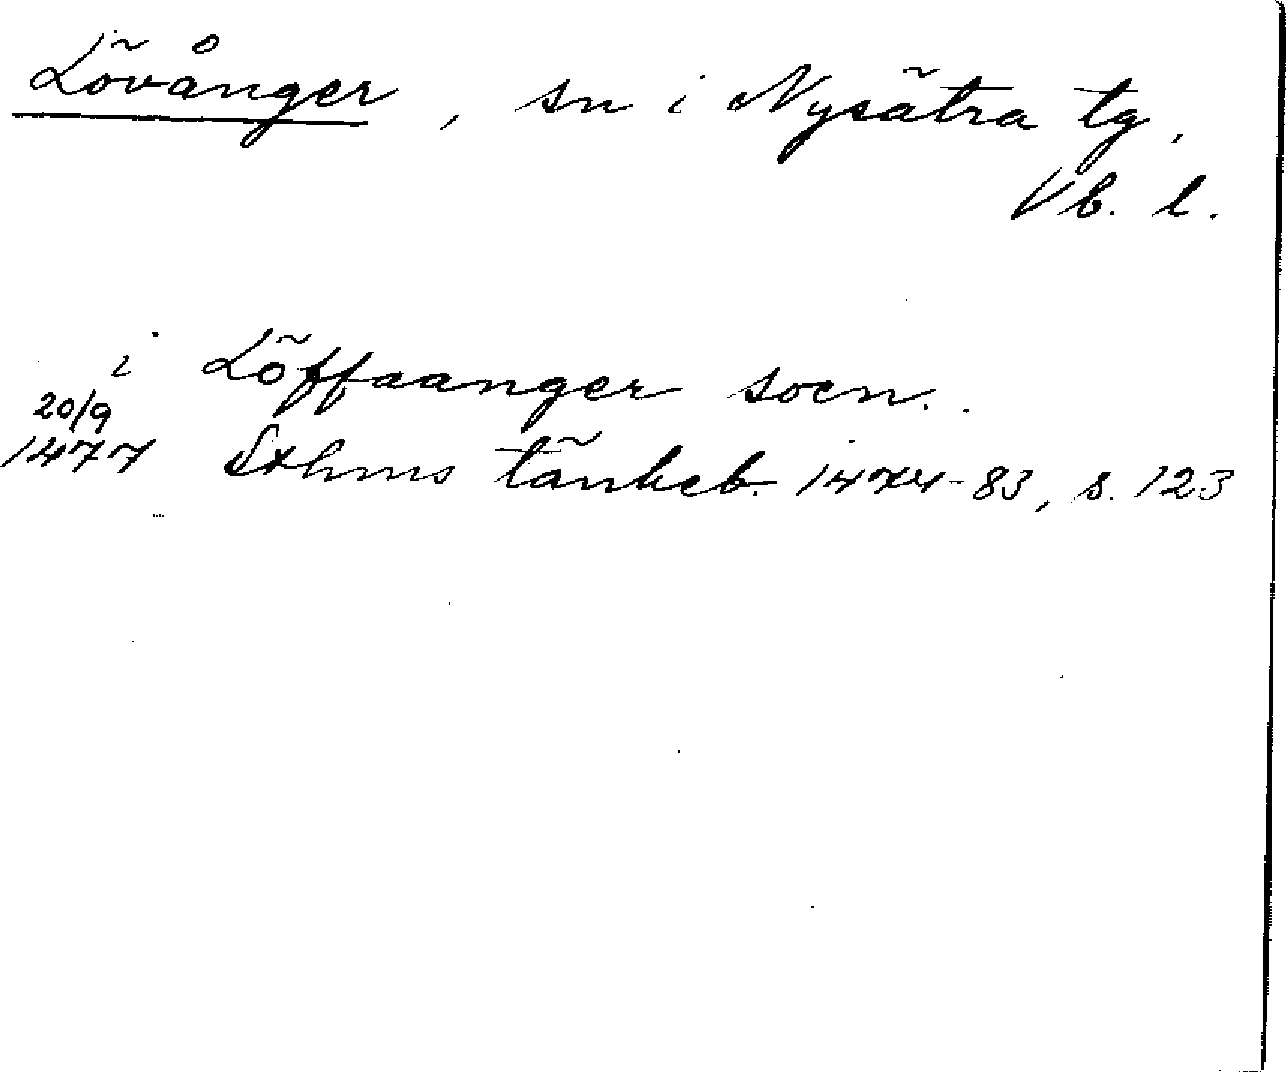 Lövånger, sn i Nysätra tg,
Vb. l.
i Löffaanger socn.
20/9
1477 Sthms tänkeb. 1474-83, s. 123